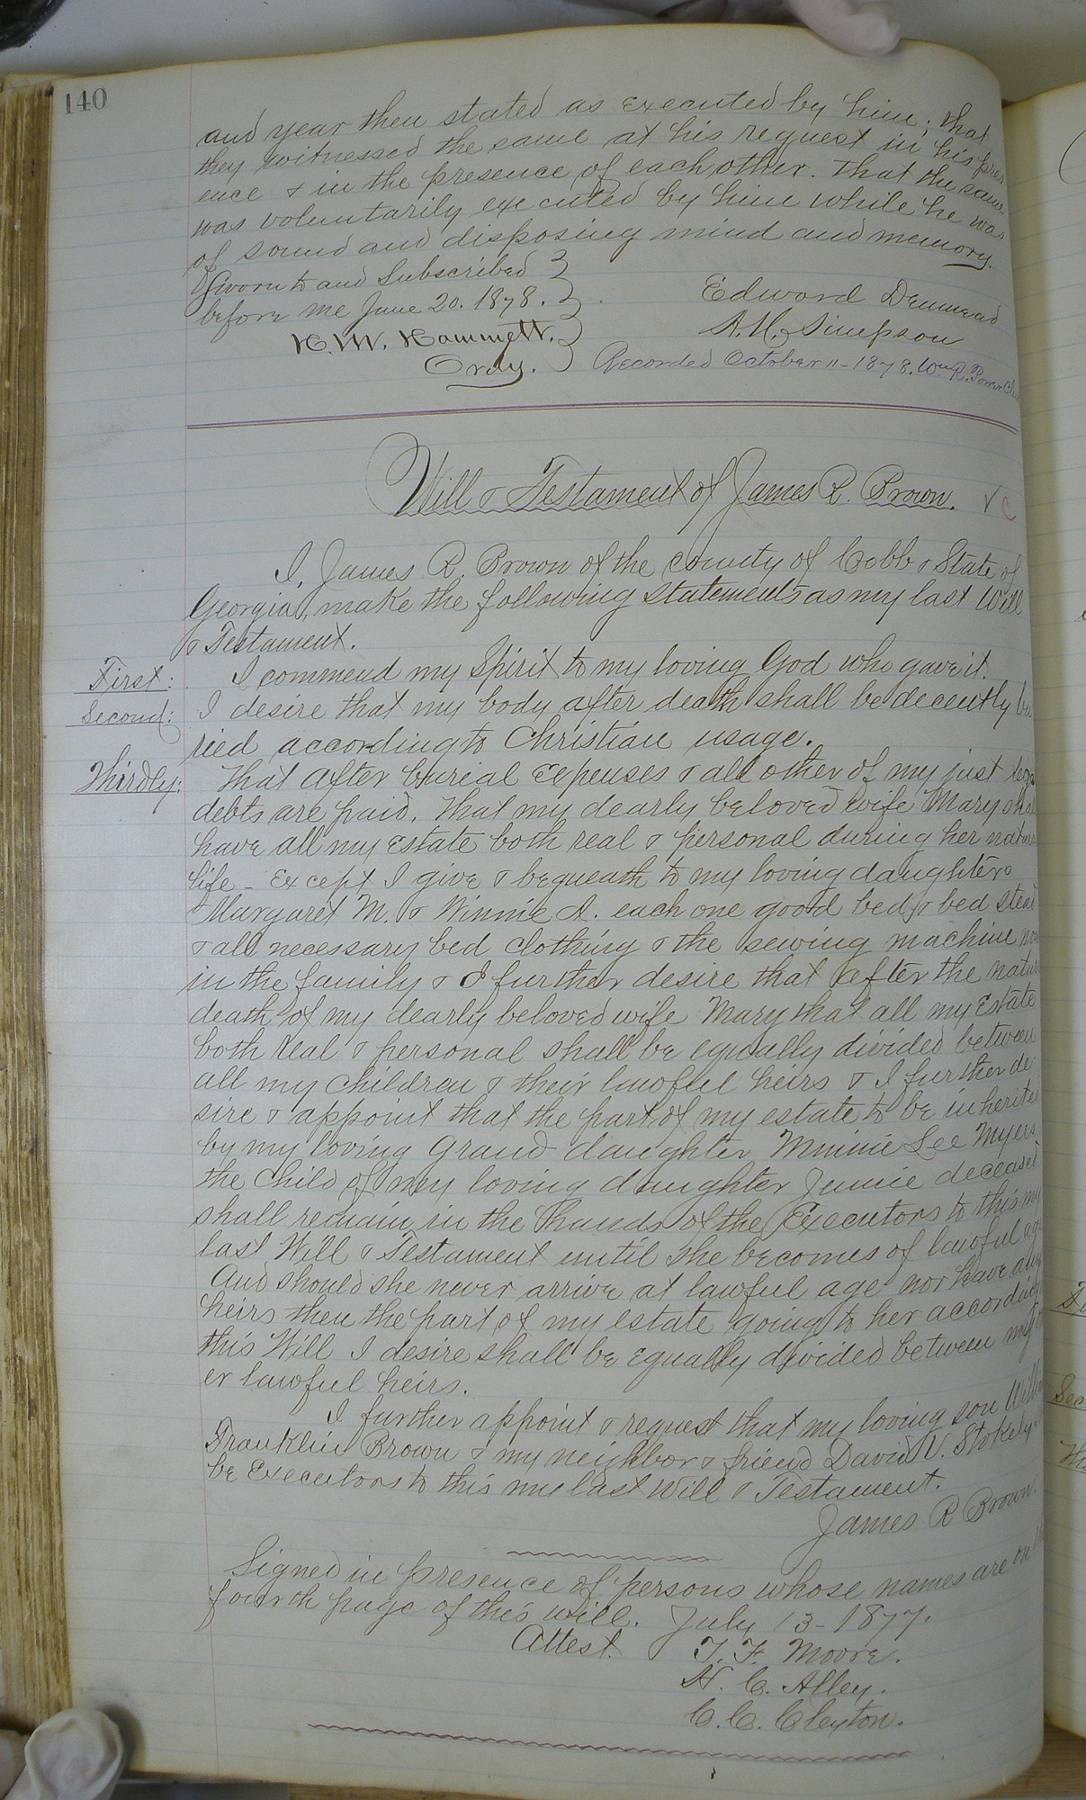 140
and year then stated as executed by him; that
they witnessed the same at his request in his pres
ence & in the presence of each other. That the same
was voluntarily executed by him while he was
of sound and disposing mind and memory.
Sworn to and Subscribed
before me June 20. 1878.
Edward Denmead
H. M. Hammett.
A. H. Simpson
Ordy.
Recorded October 11-1878. Wm R. Power Clk
Will & Testament of James R. Brown.
I, James R. Brown of the county of Cobb & State of
Georgia, make the following Statements as my last Will
& Testament.
First: I commend my Spirit to my loving God who gave it.
Second: I desire that my body after death shall be decently bu
ried according to Christian usage.
Thirdly: That after burial Expenses & all other of my just
debts are paid. That my dearly beloved wife Mary shall
have all my Estate both real & personal during her natur
life - Except I give & bequeath to my loving daughters
Margaret M. & Winnie A. each one good bed & bed stead
& all necessary bed clothing & the sewing machine now
in the family & I further desire that after the natur
death of my dearly beloved wife Mary that all my Estate
both real & personal shall be equally divided between
all my children & their lawful heirs & I further de
sire & appoint that the part of my estate to be inherited
by my loving Grand daughter Minnie Lee Myers
the Child of my loving daughter Junie deceased
shall remain in the hands of the Executors to this my
last Will & Testament until she becomes of lawful age
And should she never arrive at lawful age nor leave any
heirs then the part of my estate going to her according
this Will I desire shall be Equally divided between my
er lawful heirs.
I further appoint & request that my loving son
Franklin Brown & my neighbor & friend David V. Stokely
be Executors to this my last Will & Testament.
James R Brown.
Signed in presence of persons whose names are on
fourth page of this will. July 13-1877.
Attest. T. F. Moore.
N. C. Alley.
C. C. Cleyton.